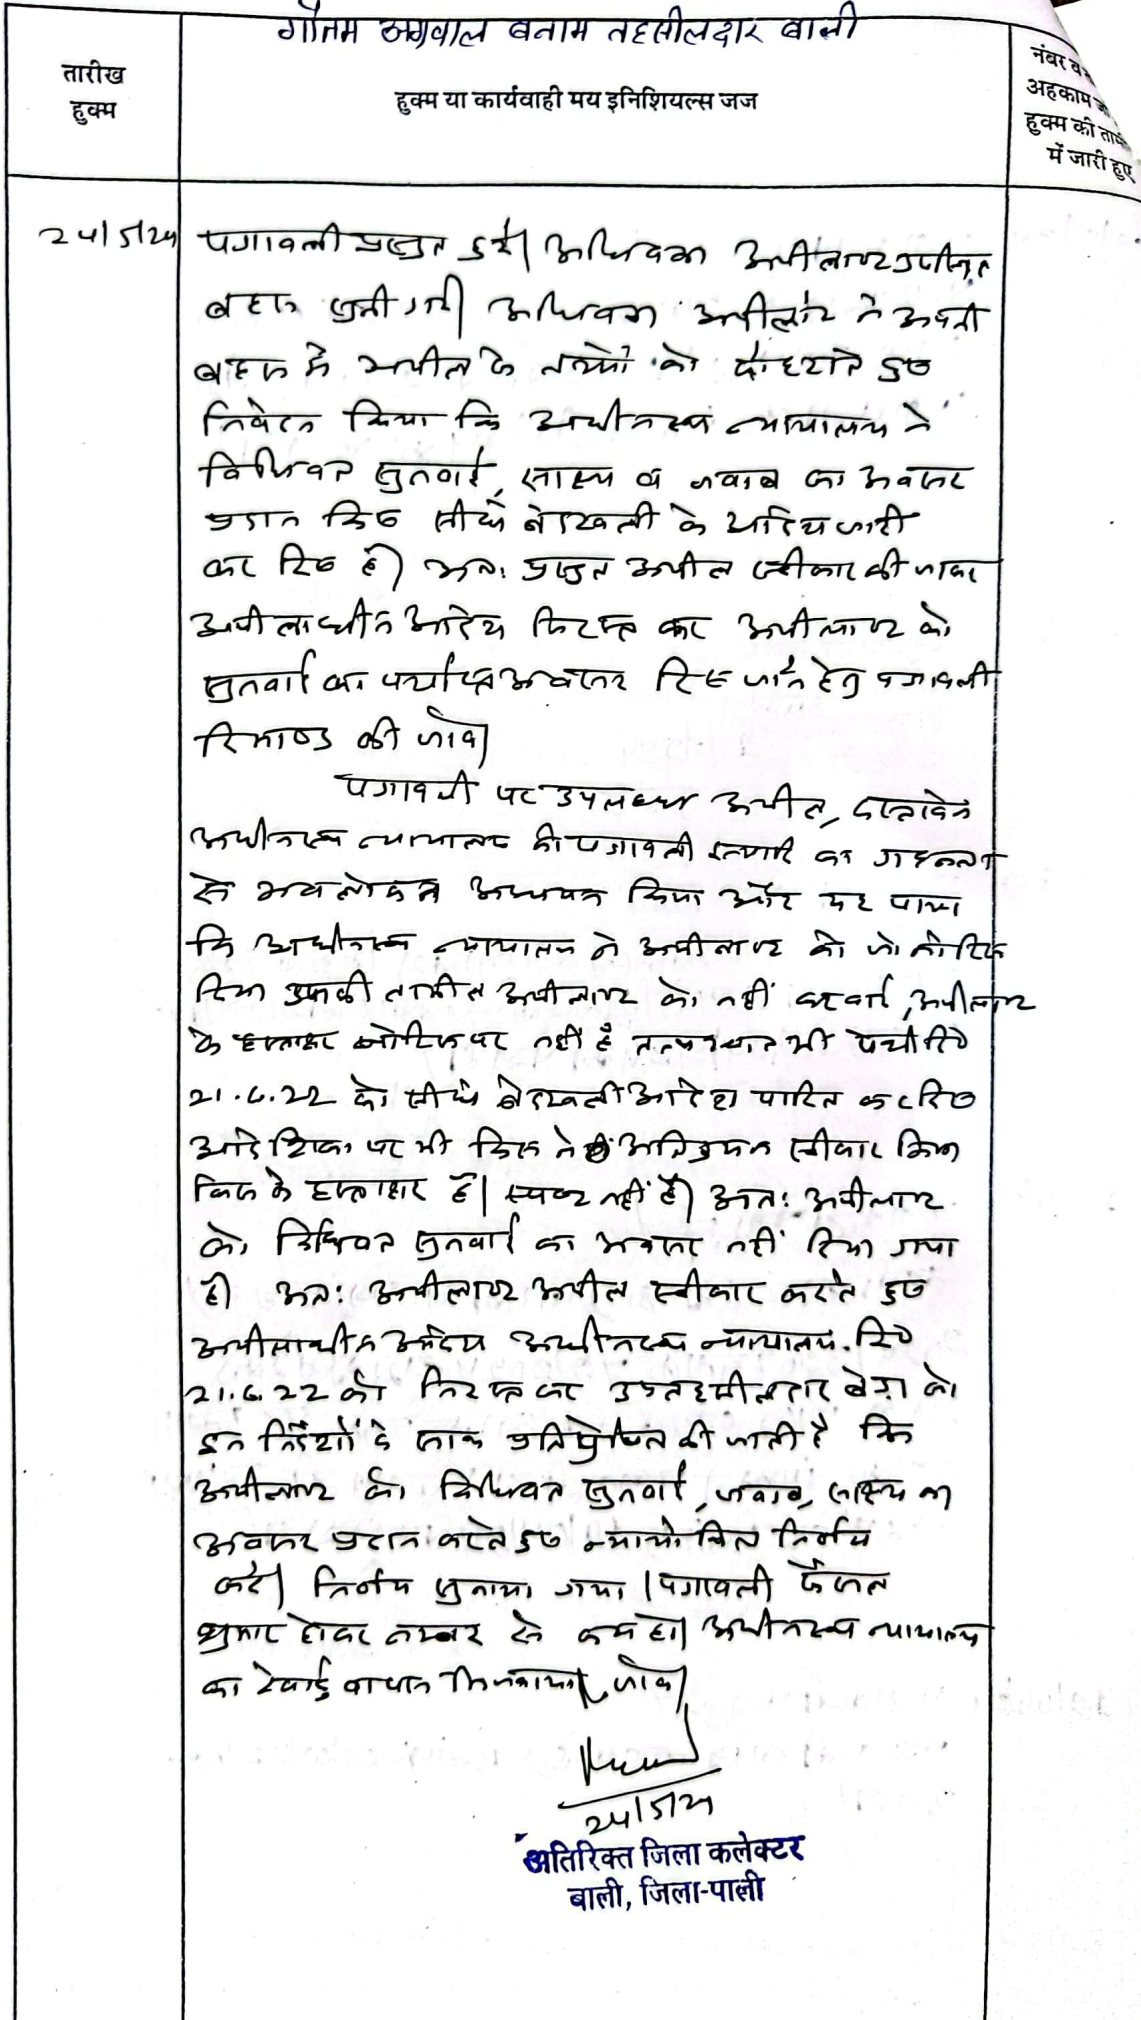 गौतम अग्रवाल बनाम तहसीलदार बाली
तारीख
हुक्म
हुक्म या कार्यवाही मय इनिशियल्स जज
नंबर व
अहकाम
हुक्म की
में जारी हुए
24/5/24
पत्रावली प्रस्तुत हुई। अधिवक्ता अपीलाण्ट उपस्थित
बहस सुनी गयी। अधिवक्ता अपीलांट ने अपनी
बहस में अपील के तथ्यों को दोहराते हुए
निवेदन किया कि अधीनस्थ न्यायालय ने
विधिवत सुनवाई, साक्ष्य व जवाब का अवसर
प्रदान किए सीधे बेदखली के आदेश जारी
कर दिए है। अतः प्रस्तुत अपील स्वीकार की जाकर
अपीलाधीन आदेश निरस्त कर अपीलाण्ट को
सुनवाई का पर्याप्त अवसर दिए जाने हेतु पत्रावली
रिमाण्ड की जावे।
पत्रावली पर उपलब्ध अपील, दस्तावेज
अधीनस्थ न्यायालय की पत्रावली इत्यादि का गहनता
से अवलोकन अध्ययन किया और यह पाया
कि अधीनस्थ न्यायालय ने अपीलाण्ट को जो नोटिस
दिया उसकी तामील अपीलाण्ट को नहीं करवाई, अपीलाण्ट
के हस्ताक्षर नोटिस पर नहीं है तत्पश्चात भी
21.6.22 को सीधे बेदखली आदेश पारित कर दिए
आदेशिका पर भी किस ने अतिक्रमण स्वीकार किया
किस के हस्ताक्षर है। स्पष्ट नहीं है। अतः अपीलाण्ट
को विधिवत सुनवाई का अवसर नहीं दिया गया
है। अतः अपीलाण्ट अपील स्वीकार करते हुए
अपीलाधीन आदेश अधीनस्थ न्यायालय दि०
21.6.22 को निरस्त कर उप तहसीलदार बेड़ा को
इन निर्देशों के साथ प्रतिप्रेषित की जाती है कि
अपीलाण्ट को विधिवत सुनवाई, जवाब, साक्ष्य का
अवसर प्रदान करते हुए न्यायोचित निर्णय
करें। निर्णय सुनाया गया। पत्रावली फैसल
शुमार होकर नम्बर से कम हो। अधीनस्थ न्यायालय
का रेकार्ड वापस भिजवाया जावे।
24/5/24
अतिरिक्त जिला कलेक्टर
बाली, जिला-पाली